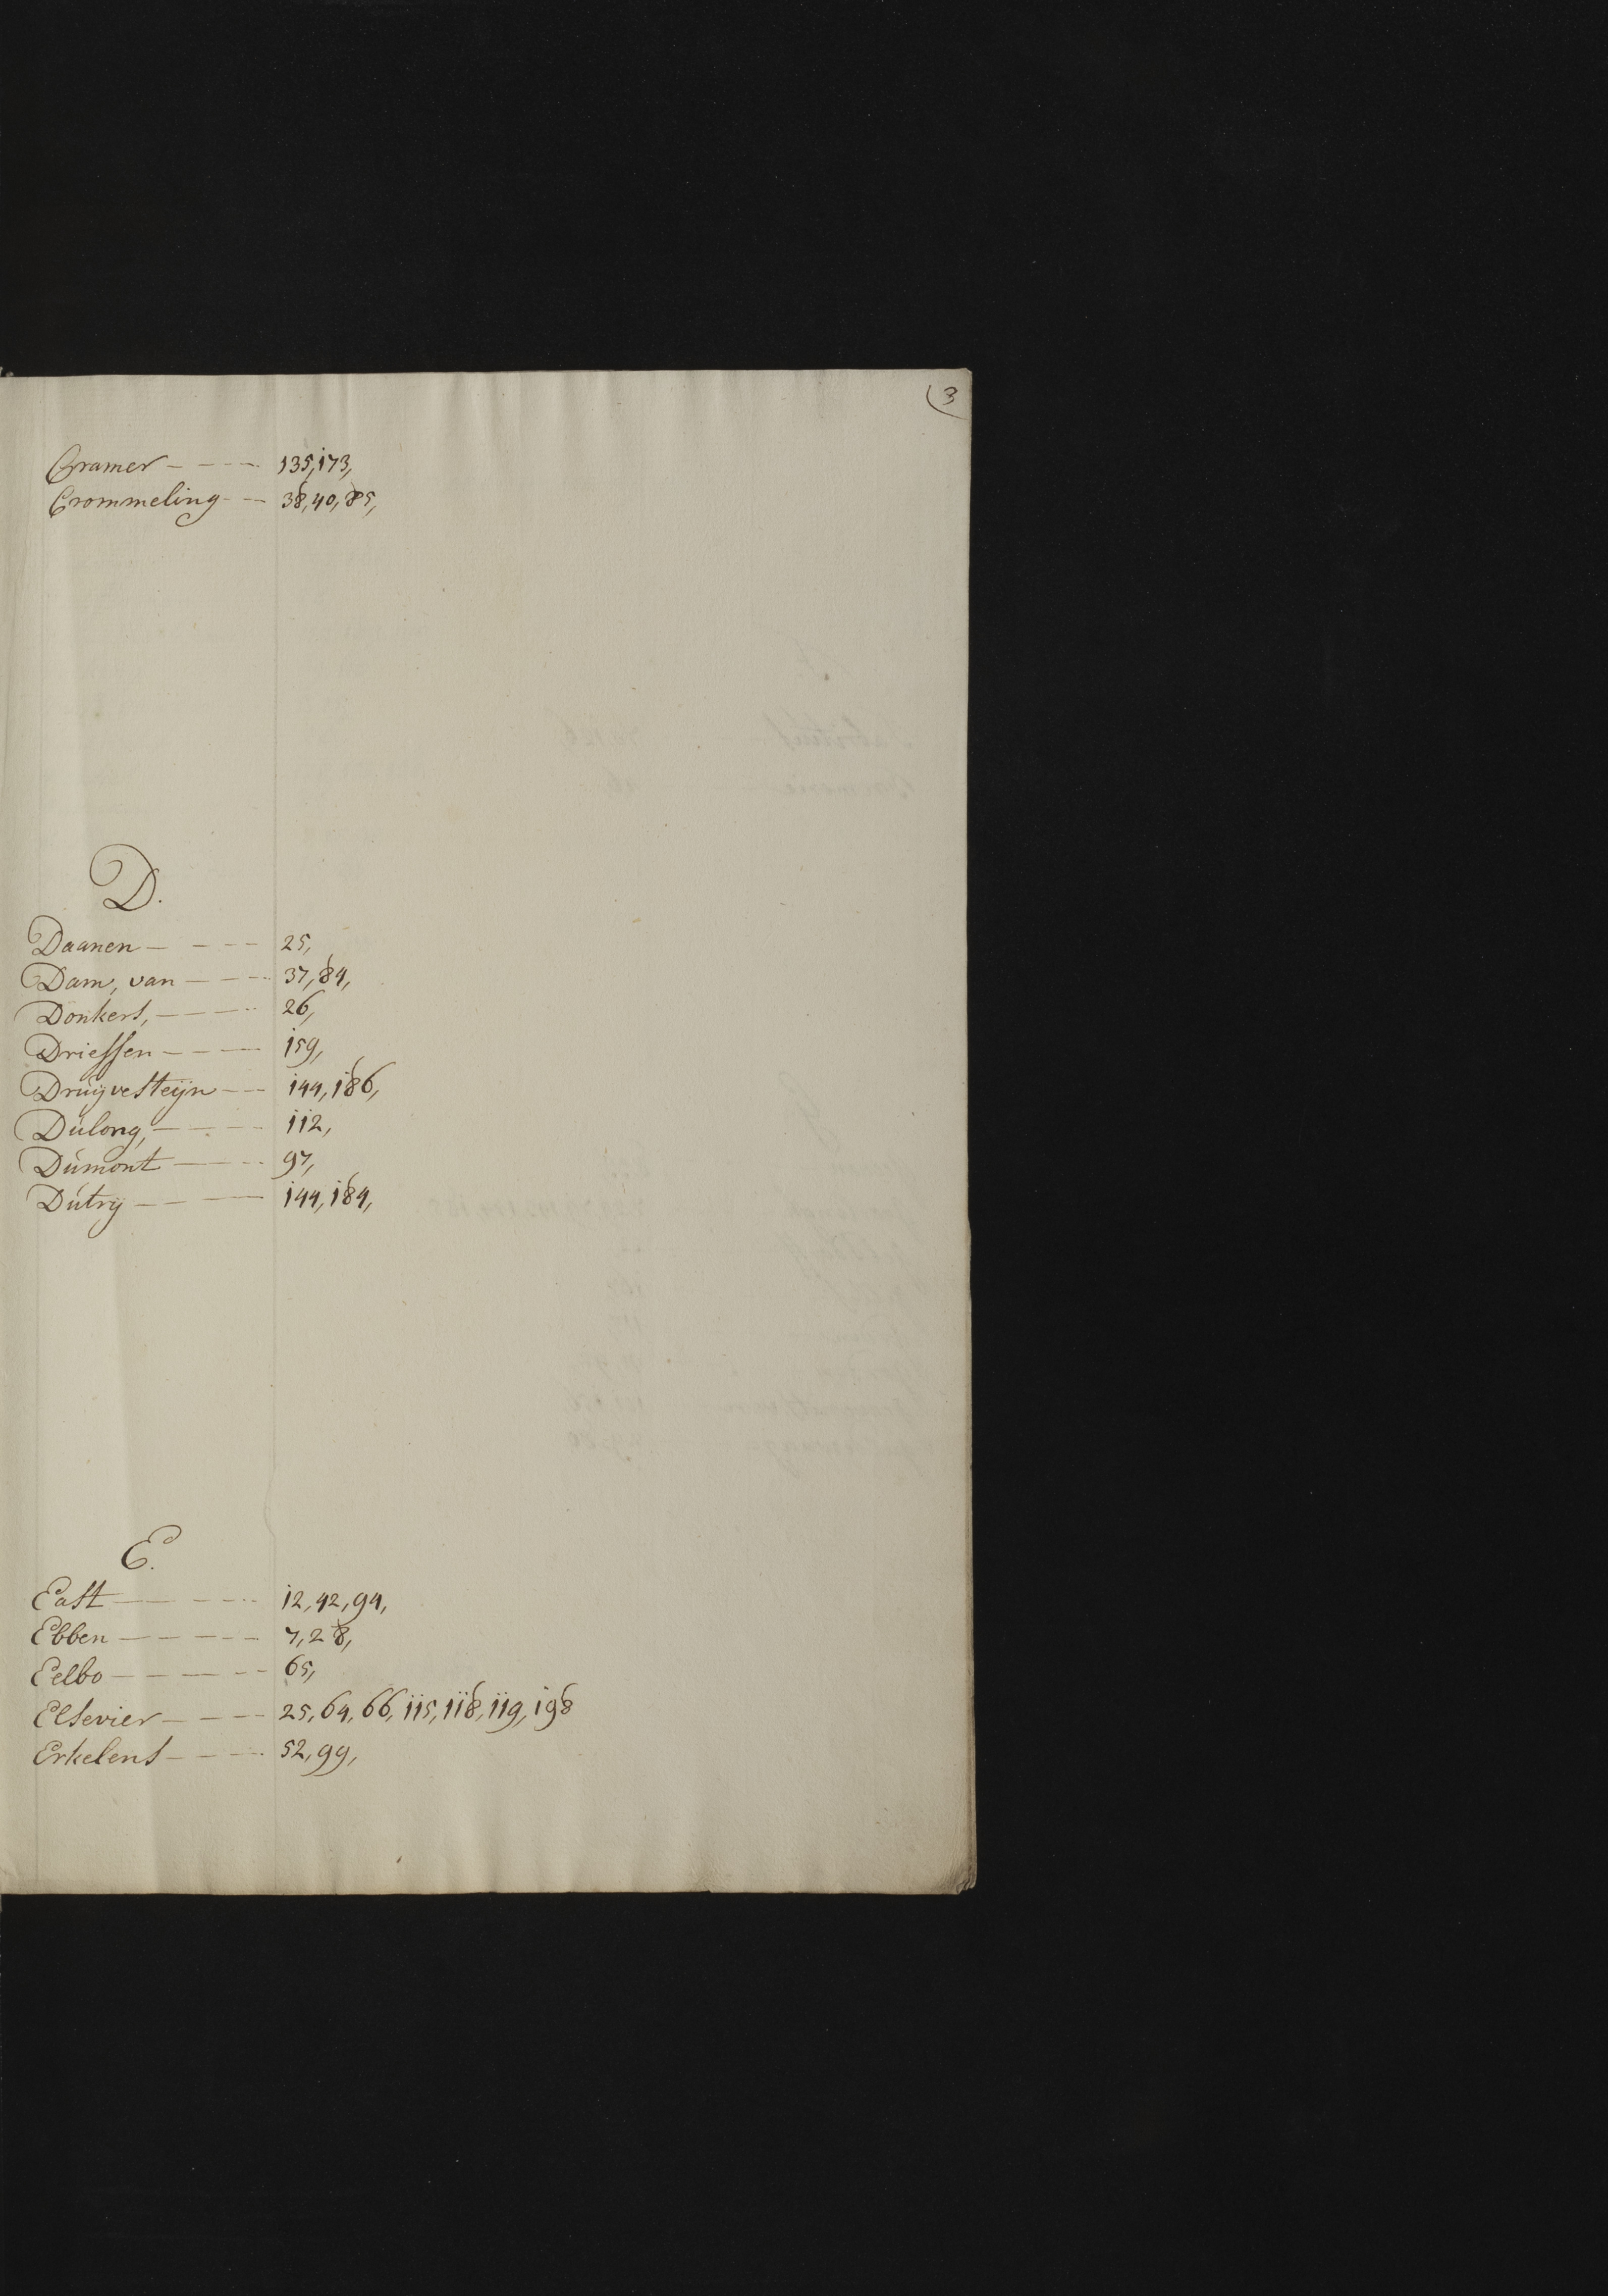 3
Cramer - - - - 135, 173,
Crommeling - - 38, 40, 85,
D.
Daanen - - - - 25,
Dam, van - - - - 37, 84,
Donkers, - - - - 26,
Driessen - - - - 159,
Drúijvesteijn - - 144, 186,
Dúlong, - - - - 112,
Dúmont - - - 97,
Dútrij - - - 144, 184,
E.
East - - - - 12, 42, 94,
Ebben - - - - - 7, 28,
Eelbo - - - - - 65,
Elsevier - - - - 25, 64, 66, 115, 118, 119, 198
Erkelens - - - - 52, 99,